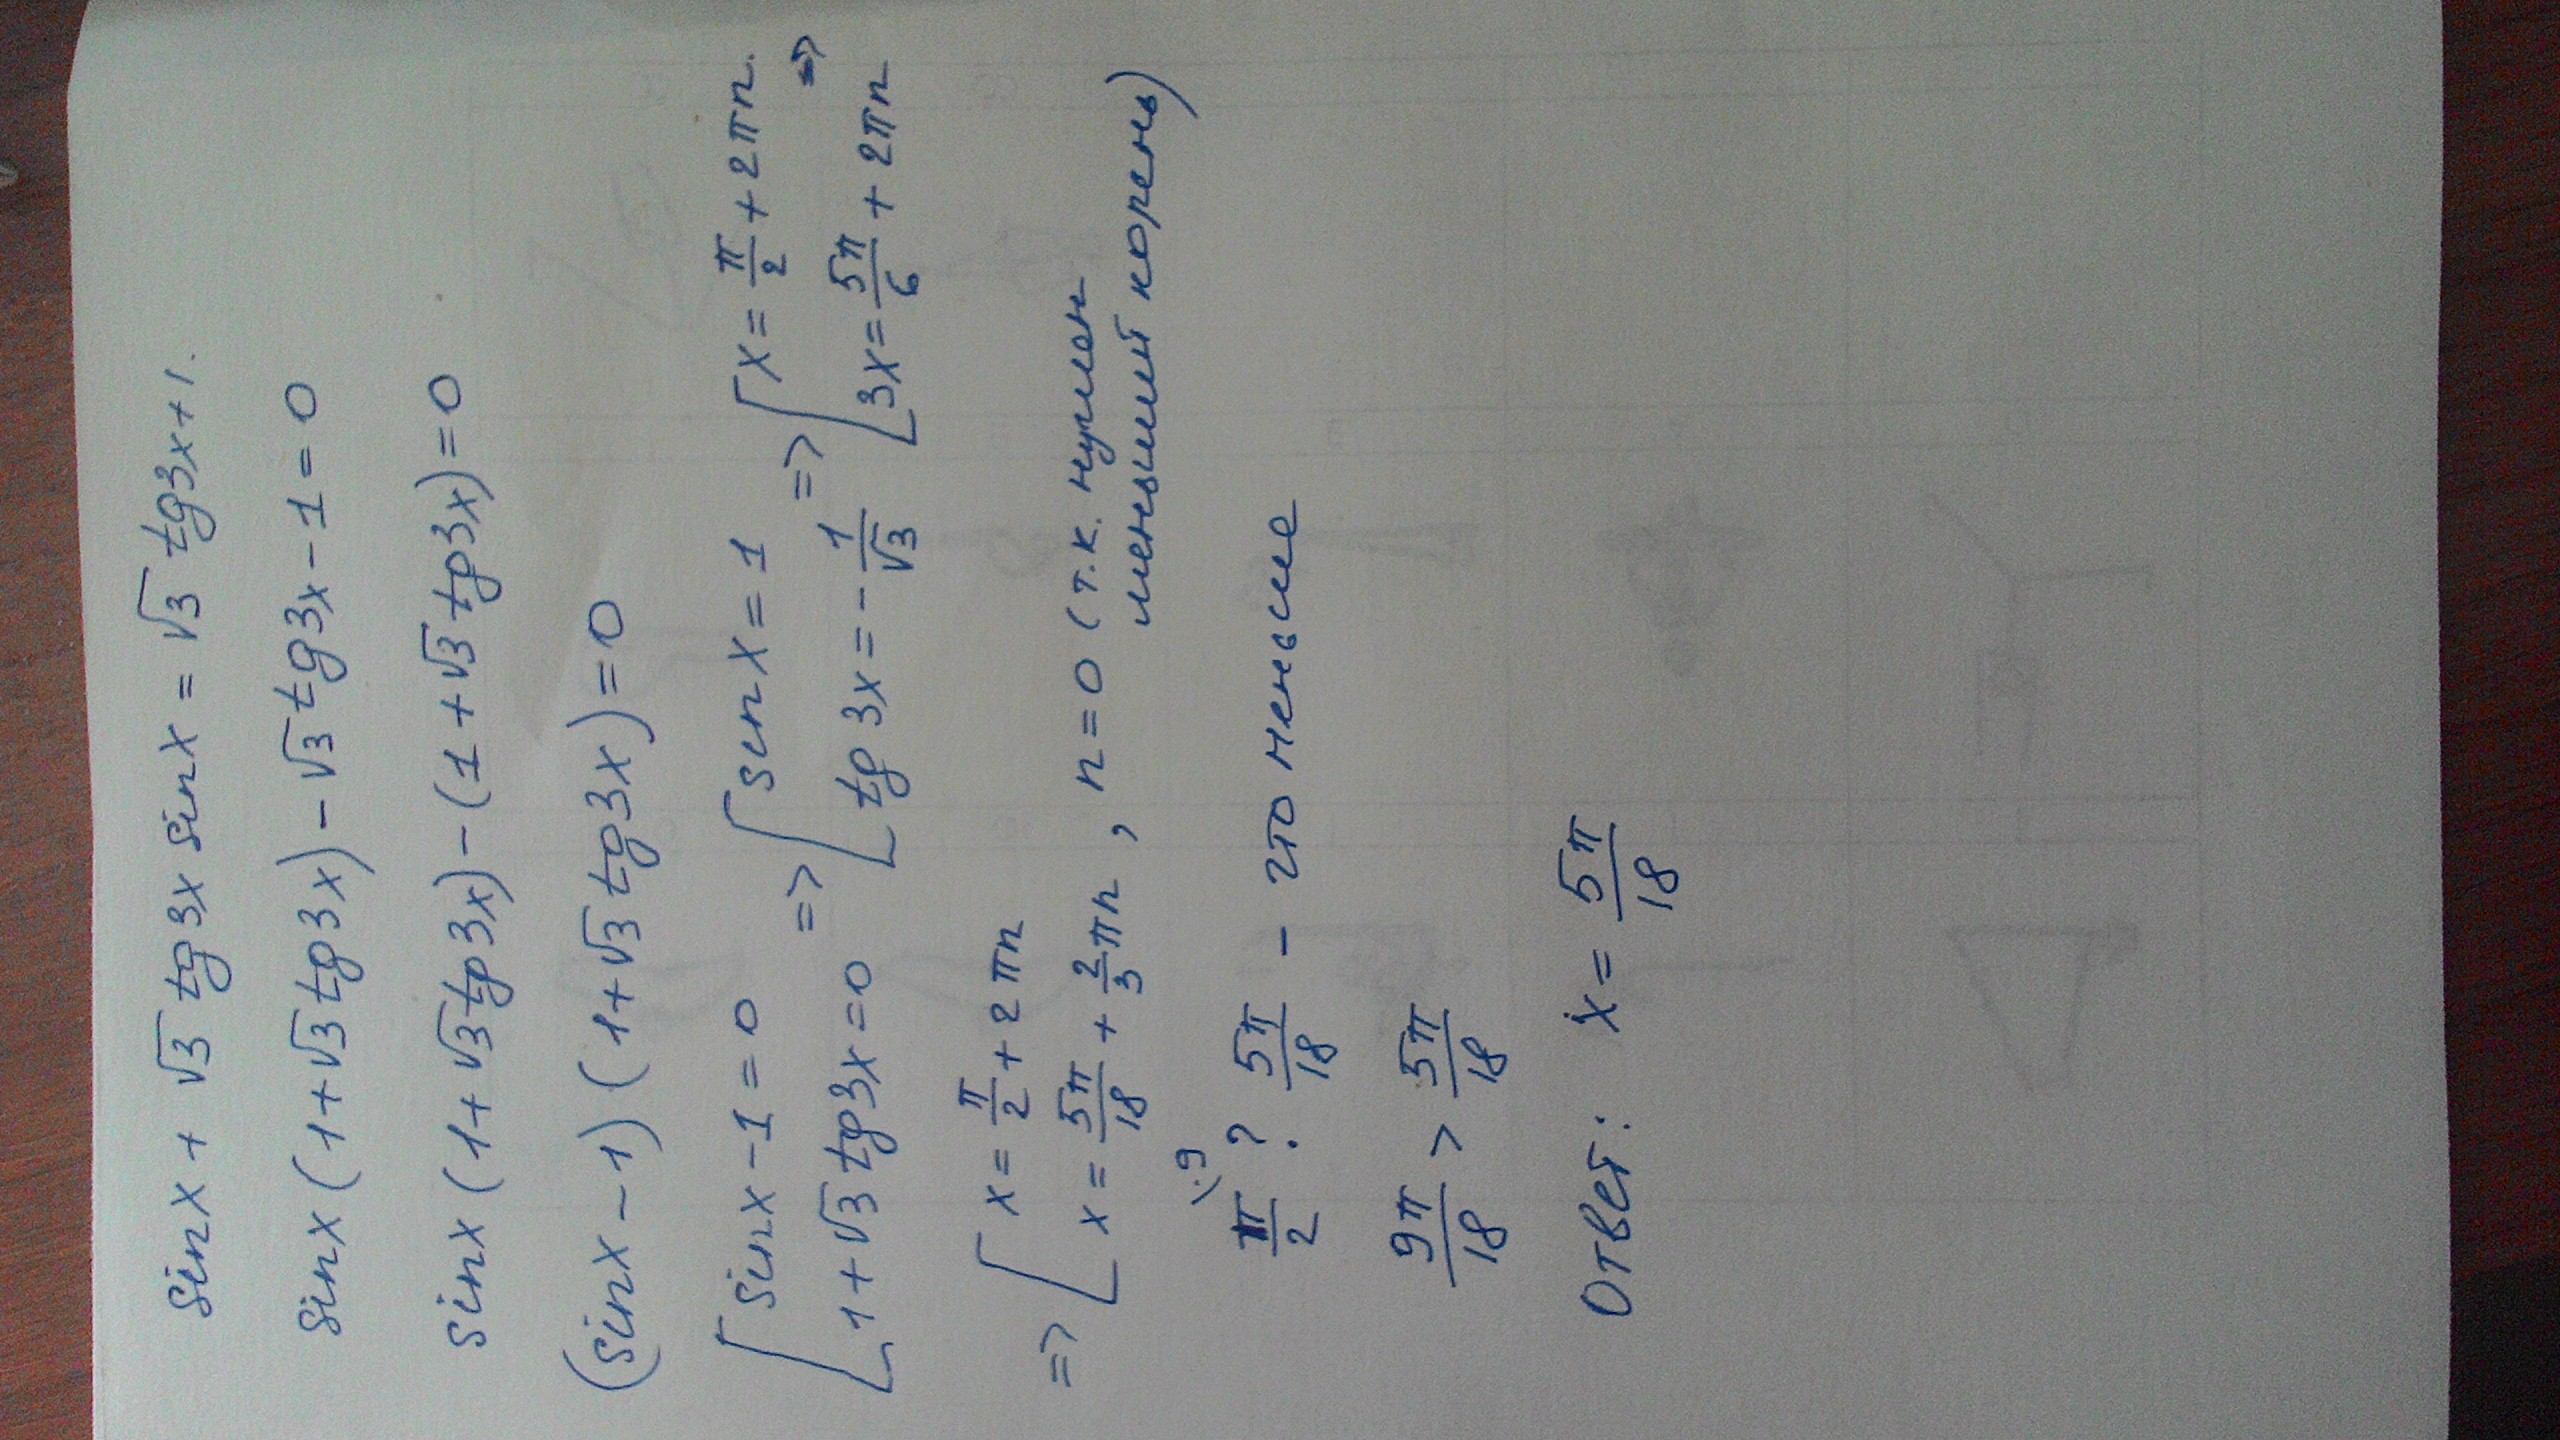 sinx + √3 tg3x sinx = √3 tg3x+1.
sinx (1+√3 tg3x) − √3 tg3x − 1 = 0
sinx (1+√3 tg3x) − (1+√3 tg3x) = 0
(sinx − 1) (1+√3 tg3x) = 0
[ sinx − 1 = 0 => [ sinx = 1 => [ x = π/2 + 2πn. =>
1+√3 tg3x = 0 tg3x = − 1/√3 3x = 5π/6 + 2πn
=> [ x = π/2 + 2πn
x = 5π/18 + 2/3 πn , n = 0 (т.к. нужен
меньший корень)
π/2 \·9 ? 5π/18 − это меньше
9π/18 > 5π/18
Ответ: x = 5π/18